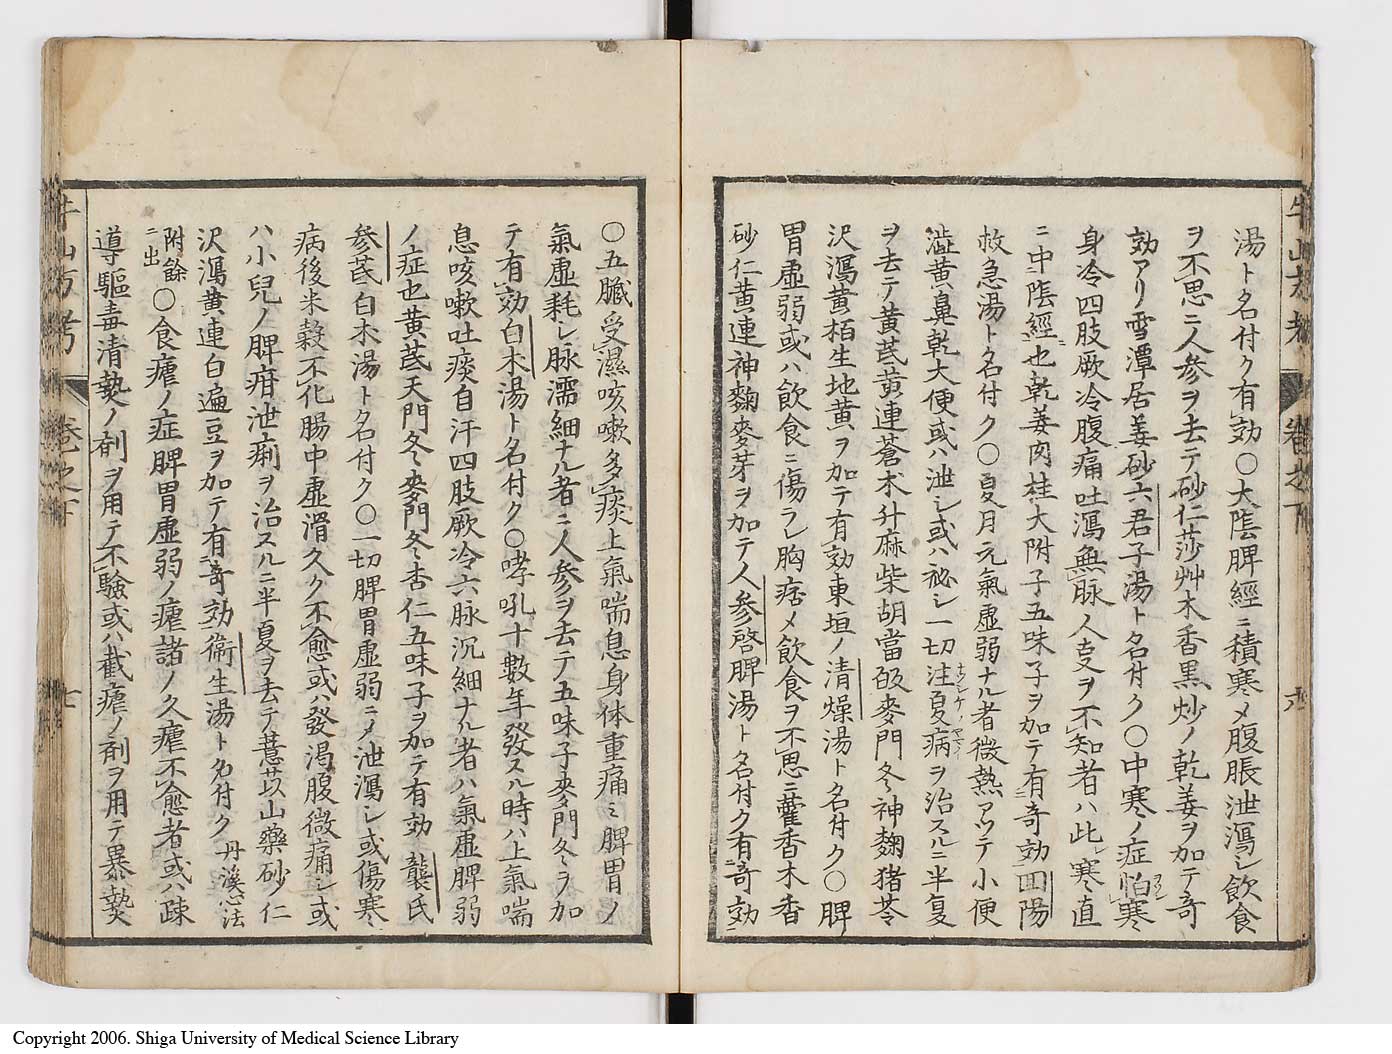 湯ト名付ク有効〇大陰脾經ニ積寒メ腹脹泄瀉シ飲食
ヲ不思ニ人參ヲ去テ砂仁莎艸木香黒炒ノ乾姜ヲ加テ奇
効アリ雪潭居姜砂六君子湯ト名付ク〇中寒ノ症怕寒
身冷四肢厥冷腹痛吐瀉無脉人事ヲ不知者ハ此レ寒直
ニ中陰經也乾姜肉桂大附子五味子ヲ加テ有奇効回陽
救急湯ト名付ク〇夏月元氣虚弱ナル者微熱アツテ小便
澁黄鼻乾大便或ハ泄シ或ハ祕シ一切注夏病ヲ治スルニ半夏
ヲ去テ黄芪黄連蒼朮升麻柴胡當皈麥門冬神麴猪苓
沢瀉黄栢生地黄ヲ加テ有効東垣ノ清燥湯ト名付ク〇脾
胃虚弱或ハ飲食ニ傷ラレ胸痞メ飲食ヲ不思ニ藿香木香
砂仁黄連神麴麥芽ヲ加テ人參啓脾湯ト名付ク有奇効
〇五臓受濕咳嗽多痰上氣喘息身体重痛ミ脾胃ノ
氣虚耗レ脉濡細ナル者ニ人參ヲ去テ五味子麥門冬ヲ加
テ有効白木湯ト名付ク〇哮吼十數年發スル時ハ上氣喘
息咳嗽吐痰自汗四肢厥冷六脉沉細ナル者ハ氣虚脾弱
ノ症也黄芪天門冬麥門冬杏仁五味子ヲ加テ有効龔氏
參芪白木湯ト名付ク〇一切脾胃虚弱ニメ泄瀉シ或傷寒
病後米穀不化腸中虚滑久ク不愈或ハ發渴腹微痛シ或
ハ小兒ノ脾疳泄痢ヲ治スルニ半夏ヲ去テ薏苡山藥砂仁
沢瀉黄連白遍豆ヲ加テ有奇効衞生湯ト名付ク丹溪心法
附餘ニ出〇食瘧ノ症脾胃虚弱ノ瘧諸ノ久瘧不愈者或ハ疎
導驅毒清熱ノ剤ヲ用テ不驗或ハ截瘧ノ剤ヲ用テ暴熱
牛山方考 巻之下 七